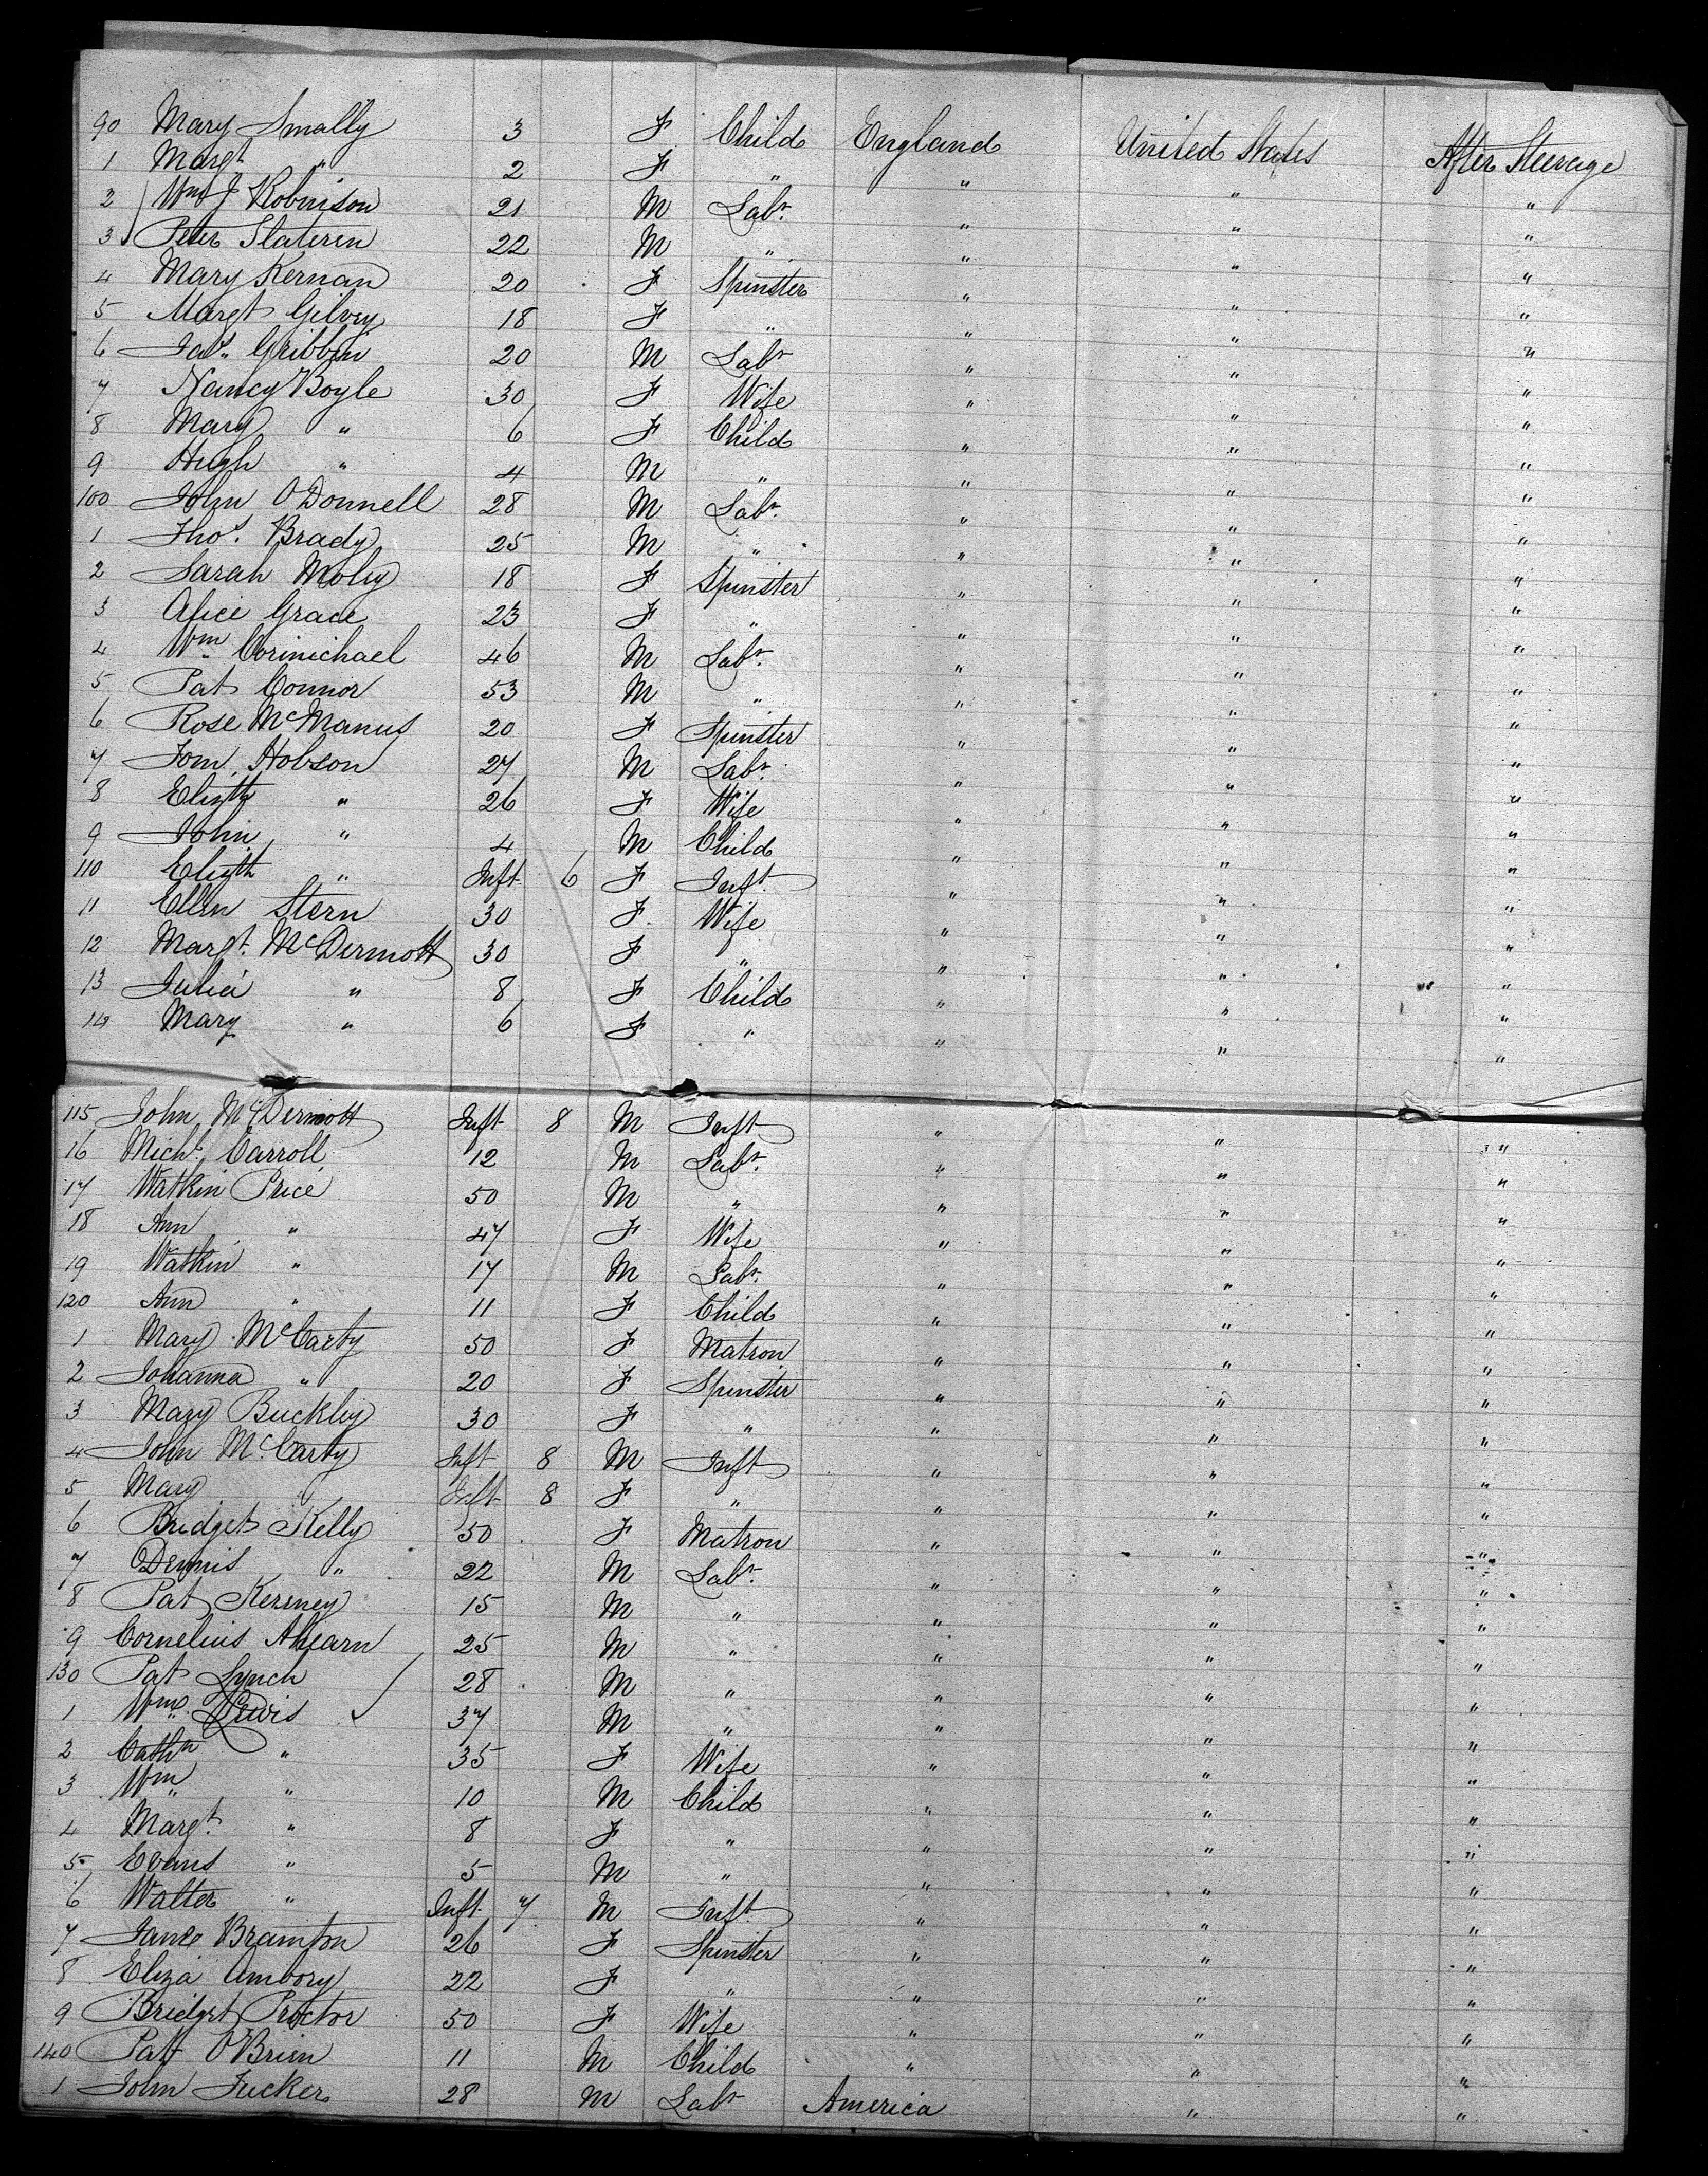 90 Mary Smally 3 F Child England United States After Steerage
1 Margt " 2 F " " " "
2 Wm J Robinson 21 M Labr. " " "
3 Peter Slateren 22 M " " " "
4 Mary Kernan 20 F Spinster " " "
5 Margt Gilvey 18 F " " " "
6 Jas. Gribbin 20 M Labr " " "
7 Nancy Boyle 30 F Wife " " "
8 Mary " 6 F Child " " "
9 Hugh " 4 M " " " "
100 John O'Donnell 28 M Labr. " " "
1 Thos. Brady 25 M " " " "
2 Sarah Moley 18 F Spinster " " "
3 Alice Grace 23 F " " " "
4 Wm. Corinichael 46 M Labr. " " "
5 Pat Connor 53 M " " " "
6 Rose McManus 20 F Spinster " " "
7 Tom Hobson 27 M Labr. " " "
8 Elizth " 26 F Wife " " "
9 John " 4 M Child " " "
110 Elizth " Inft. 6 F Inft. " " "
11 Ellen Stern 30 F. Wife " " "
12 Margt. McDermott 30 F " " " "
13 Julia " 8 F Child " " "
14 Mary " 6 F " " " "
115 John McDermott Inft. 8 M Inft " " "
16 Michl. Carroll 12 M Labr. " " "
17 Watkin Price 50 M " " " "
18 Ann " 47 F Wife " " "
19 Watkin " 17 M Labr. " " "
120 Ann " 11 F Child " " "
1 Mary McCarty 50 F Matron " " "
2 Johanna " 20 F Spinster " " "
3 Mary Buckley 30 F " " " "
4 John McCarty Inft 8 M Inft " " "
5 Mary " Inft 8 F " " " "
6 Bridget Kelly 50 F Matron " " "
7 Dennis " 22 M Labr. " " "
8 Pat Kerney 15 M " " " "
9 Cornelius Ahearn 25 M " " " "
130 Pat Lynch 28 M " " " "
1 Wm. Lewis ✓ 37 M " " " "
2 Cathn " 35 F Wife " " "
3 Wm. " 10 M Child " " "
4 Margt. " 8 F " " " "
5 Evans " 5 M " " " "
6 Walter " Inft. 7 M Inft. " " "
7 Jane Brampton 26 F Spinster " " "
8 Eliza 22 F " " " "
9 Bridget Proctor 50 F Wife " " "
140 Pat O'Brien 11 M Child " " "
1 John Tucker 28 M Labr America " "